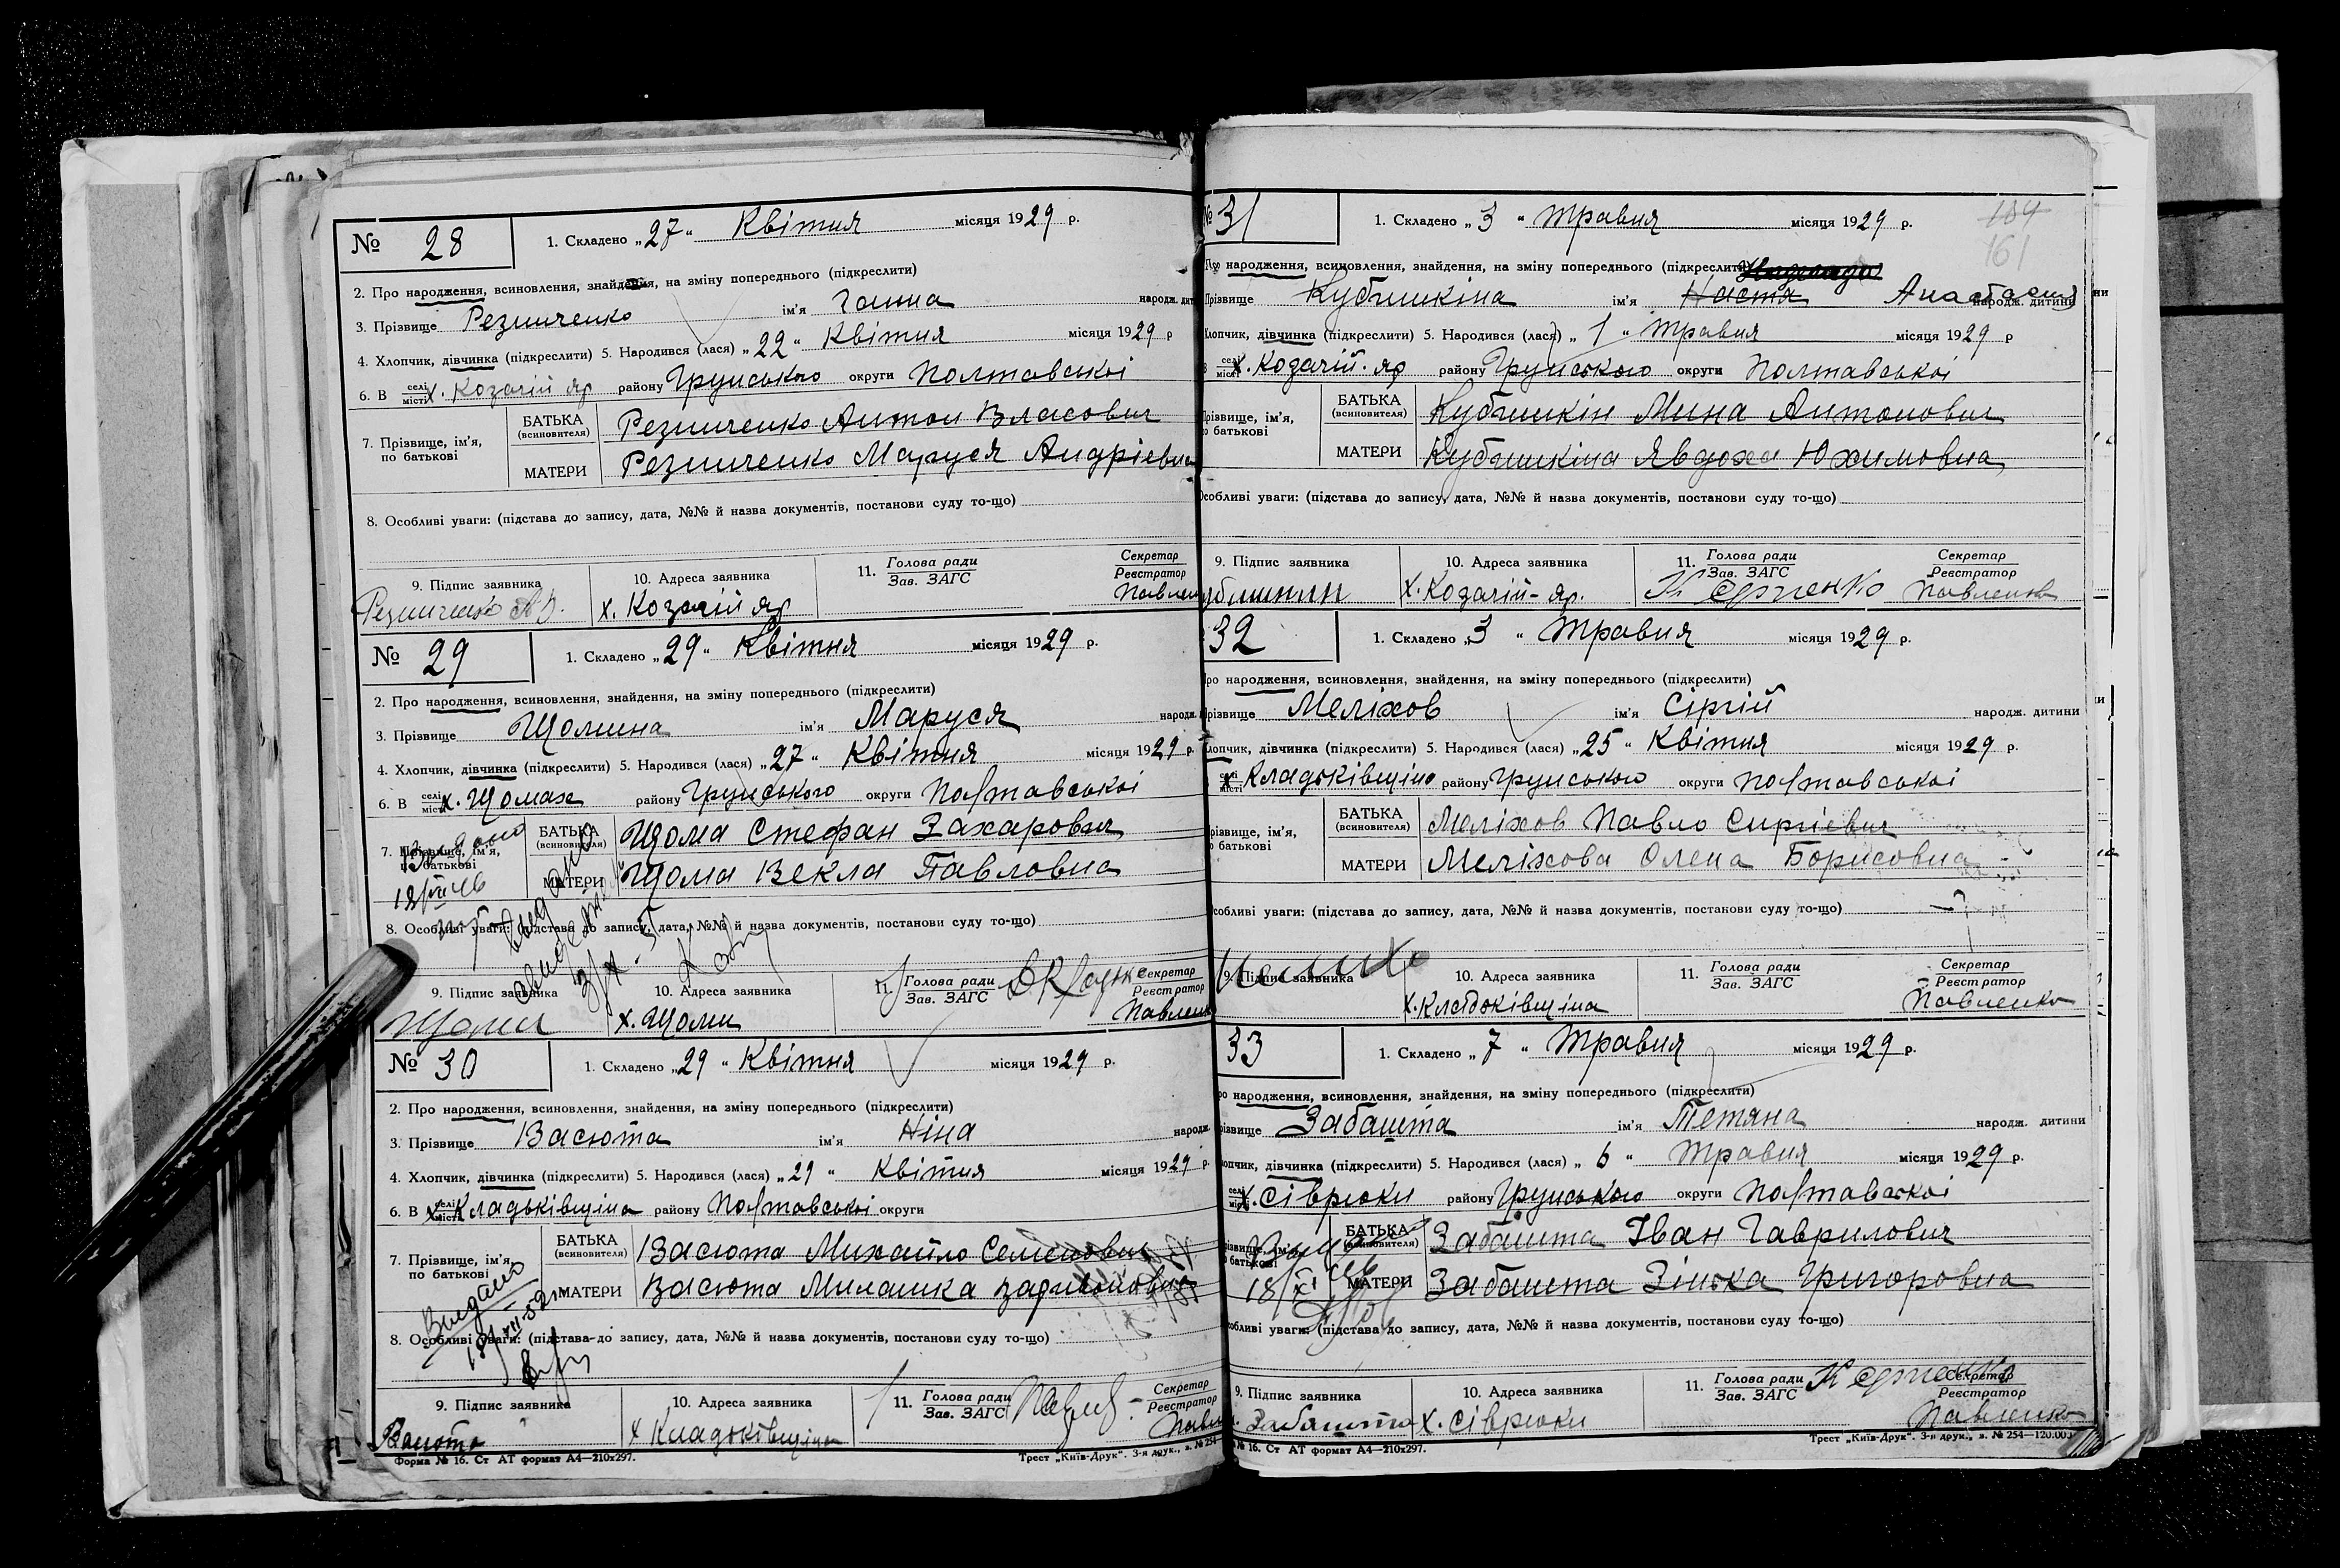 № 28
1. Складено „27“ Квітня місяця 1929 р.
2. Про народження, всиновлення, знайдення, на зміну попереднього (підкреслити)
3. Прізвище Резниченко ім'я Ганна народж. дит
4. Хлопчик, дівчинка (підкреслити) 5. Народився (лася) „22“ Квітня місяця 1929 р
6. В селі місті х. Козачій яр району Грунського округи Полтавської
7. Прізвище, ім'я, по батькові
БАТЬКА (всиновителя) Резниченко Антон Власович
МАТЕРИ Резниченко Маруся Андрієвна
8. Особливі уваги: (підстава до запису, дата, №№ й назва документів, постанови суду то-що)
9. Підпис заявника
10. Адреса заявника
11. Голова ради Зав. ЗАГС
Секретар Реєстратор
Резниченко А.В.
х. Козачій яр
Павлен
№ 29
1. Складено „29“ Квітня місяця 1929 р.
2. Про народження, всиновлення, знайдення, на зміну попереднього (підкреслити)
3. Прізвище Щомина ім'я Маруся народж.
4. Хлопчик, дівчинка (підкреслити) 5. Народився (лася) „27“ Квітня місяця 1929 р.
6. В селі місті х. Щомах району Грунського округи Полтавської
7. Прізвище, ім'я, по батькові
БАТЬКА (всиновителя) Щома Стефан Захарович
МАТЕРИ Щома Векла Павловна
8. Особливі уваги: (підстава до запису, дата, №№ й назва документів, постанови суду то-що)
9. Підпис заявника
10. Адреса заявника
11. Голова ради Зав. ЗАГС
Секретар Реєстратор
х. Щоми
Павленк
№ 30
1. Складено „29“ Квітня місяця 1929 р.
2. Про народження, всиновлення, знайдення, на зміну попереднього (підкреслити)
3. Прізвище Васюта ім'я Ніна народж.
4. Хлопчик, дівчинка (підкреслити) 5. Народився (лася) „21“ Квітня місяця 1929 р.
6. В селі місті х Кладьківщина району Полтавської округи
7. Прізвище, ім'я, по батькові
БАТЬКА (всиновителя) Васюта Михайло Семенович
МАТЕРИ Васюта Милашка
Видано
8. Особливі уваги: (підстава до запису, дата, №№ й назва документів, постанови суду то-що)
9. Підпис заявника
10. Адреса заявника
11. Голова ради Зав. ЗАГС
Секретар Реєстратор
Васюта
х Кладьківщина
Форма № 16. Ст АТ формат А4—210х297.
Трест „Київ-Друк“. 3-я друк., з. № 254
№ 31
1. Складено „3“ Травня місяця 1929 р.
184
161
Про народження, всиновлення, знайдення, на зміну попереднього (підкреслити)
Прізвище Кубишкіна ім'я Настя Анастасия народж. дитини
Хлопчик, дівчинка (підкреслити) 5. Народився (лася) „1“ Травня місяця 1929 р
селі місті х. Козачій-яр району Грунського округи Полтавської
Прізвище, ім'я, по батькові
БАТЬКА (всиновителя) Кубишкін Мина Антонович
МАТЕРИ Кубишкіна Явдоха Юхимовна
Особливі уваги: (підстава до запису, дата, №№ й назва документів, постанови суду то-що)
9. Підпис заявника
10. Адреса заявника
11. Голова ради Зав. ЗАГС
Секретар Реєстратор
х. Козачій-яр.
Павленко
32
1. Складено „3“ Травня місяця 1929 р.
Про народження, всиновлення, знайдення, на зміну попереднього (підкреслити)
Прізвище Меліхов ім'я Сіргій народж. дитини
Хлопчик, дівчинка (підкреслити) 5. Народився (лася) „25“ Квітня місяця 1929 р.
селі місті х Кладьківщина району Грунського округи Полтавської
Прізвище, ім'я, по батькові
БАТЬКА (всиновителя) Меліхов Павло Сиргієвич
МАТЕРИ Меліхова Олена Борисовна
Особливі уваги: (підстава до запису, дата, №№ й назва документів, постанови суду то-що)
9. Підпис заявника
10. Адреса заявника
11. Голова ради Зав. ЗАГС
Секретар Реєстратор
х. Кладьківщина
Павленко
33
1. Складено „7“ Травня місяця 1929 р.
Про народження, всиновлення, знайдення, на зміну попереднього (підкреслити)
Прізвище Забашта ім'я Тетяна народж. дитини
Хлопчик, дівчинка (підкреслити) 5. Народився (лася) „6“ Травня місяця 1929 р.
селі місті х. Сіврюки району Грунського округи Полтавської
Прізвище, ім'я, по батькові
БАТЬКА (всиновителя) Забашта Іван Гаврилович
МАТЕРИ Забашта Зінька Григоровна
Особливі уваги: (підстава до запису, дата, №№ й назва документів, постанови суду то-що)
9. Підпис заявника
10. Адреса заявника
11. Голова ради Зав. ЗАГС
Секретар Реєстратор
Забашта
х. Сіврюки
Павленко
№ 16. Ст АТ формат А4—210х297.
Трест „Київ-Друк“. 3-я друк., з. № 254—120.000